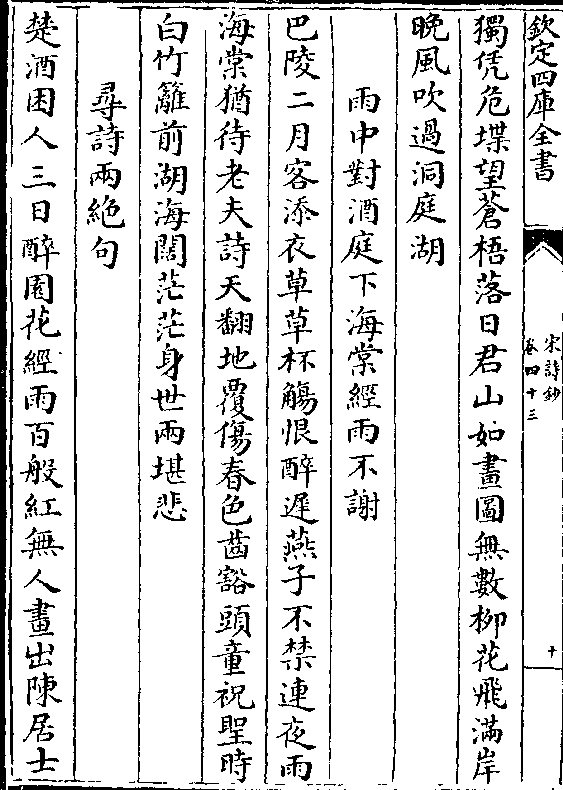 欽定四庫全書
宋詩鈔
卷四十三
十
獨凭危堞望蒼梧落日君山如畫圖無數柳花飛滿岸
晚風吹過洞庭湖
雨中對酒庭下海棠經雨不謝
巴陵二月客添衣草草杯觴恨醉遲燕子不禁連夜雨
海棠猶待老夫詩天翻地覆傷春色齒豁頭童祝聖時
白竹籬前湖海闊茫茫身世兩堪悲
尋詩兩絶句
楚酒困人三日醉園花經雨百般紅無人畫出陳居士